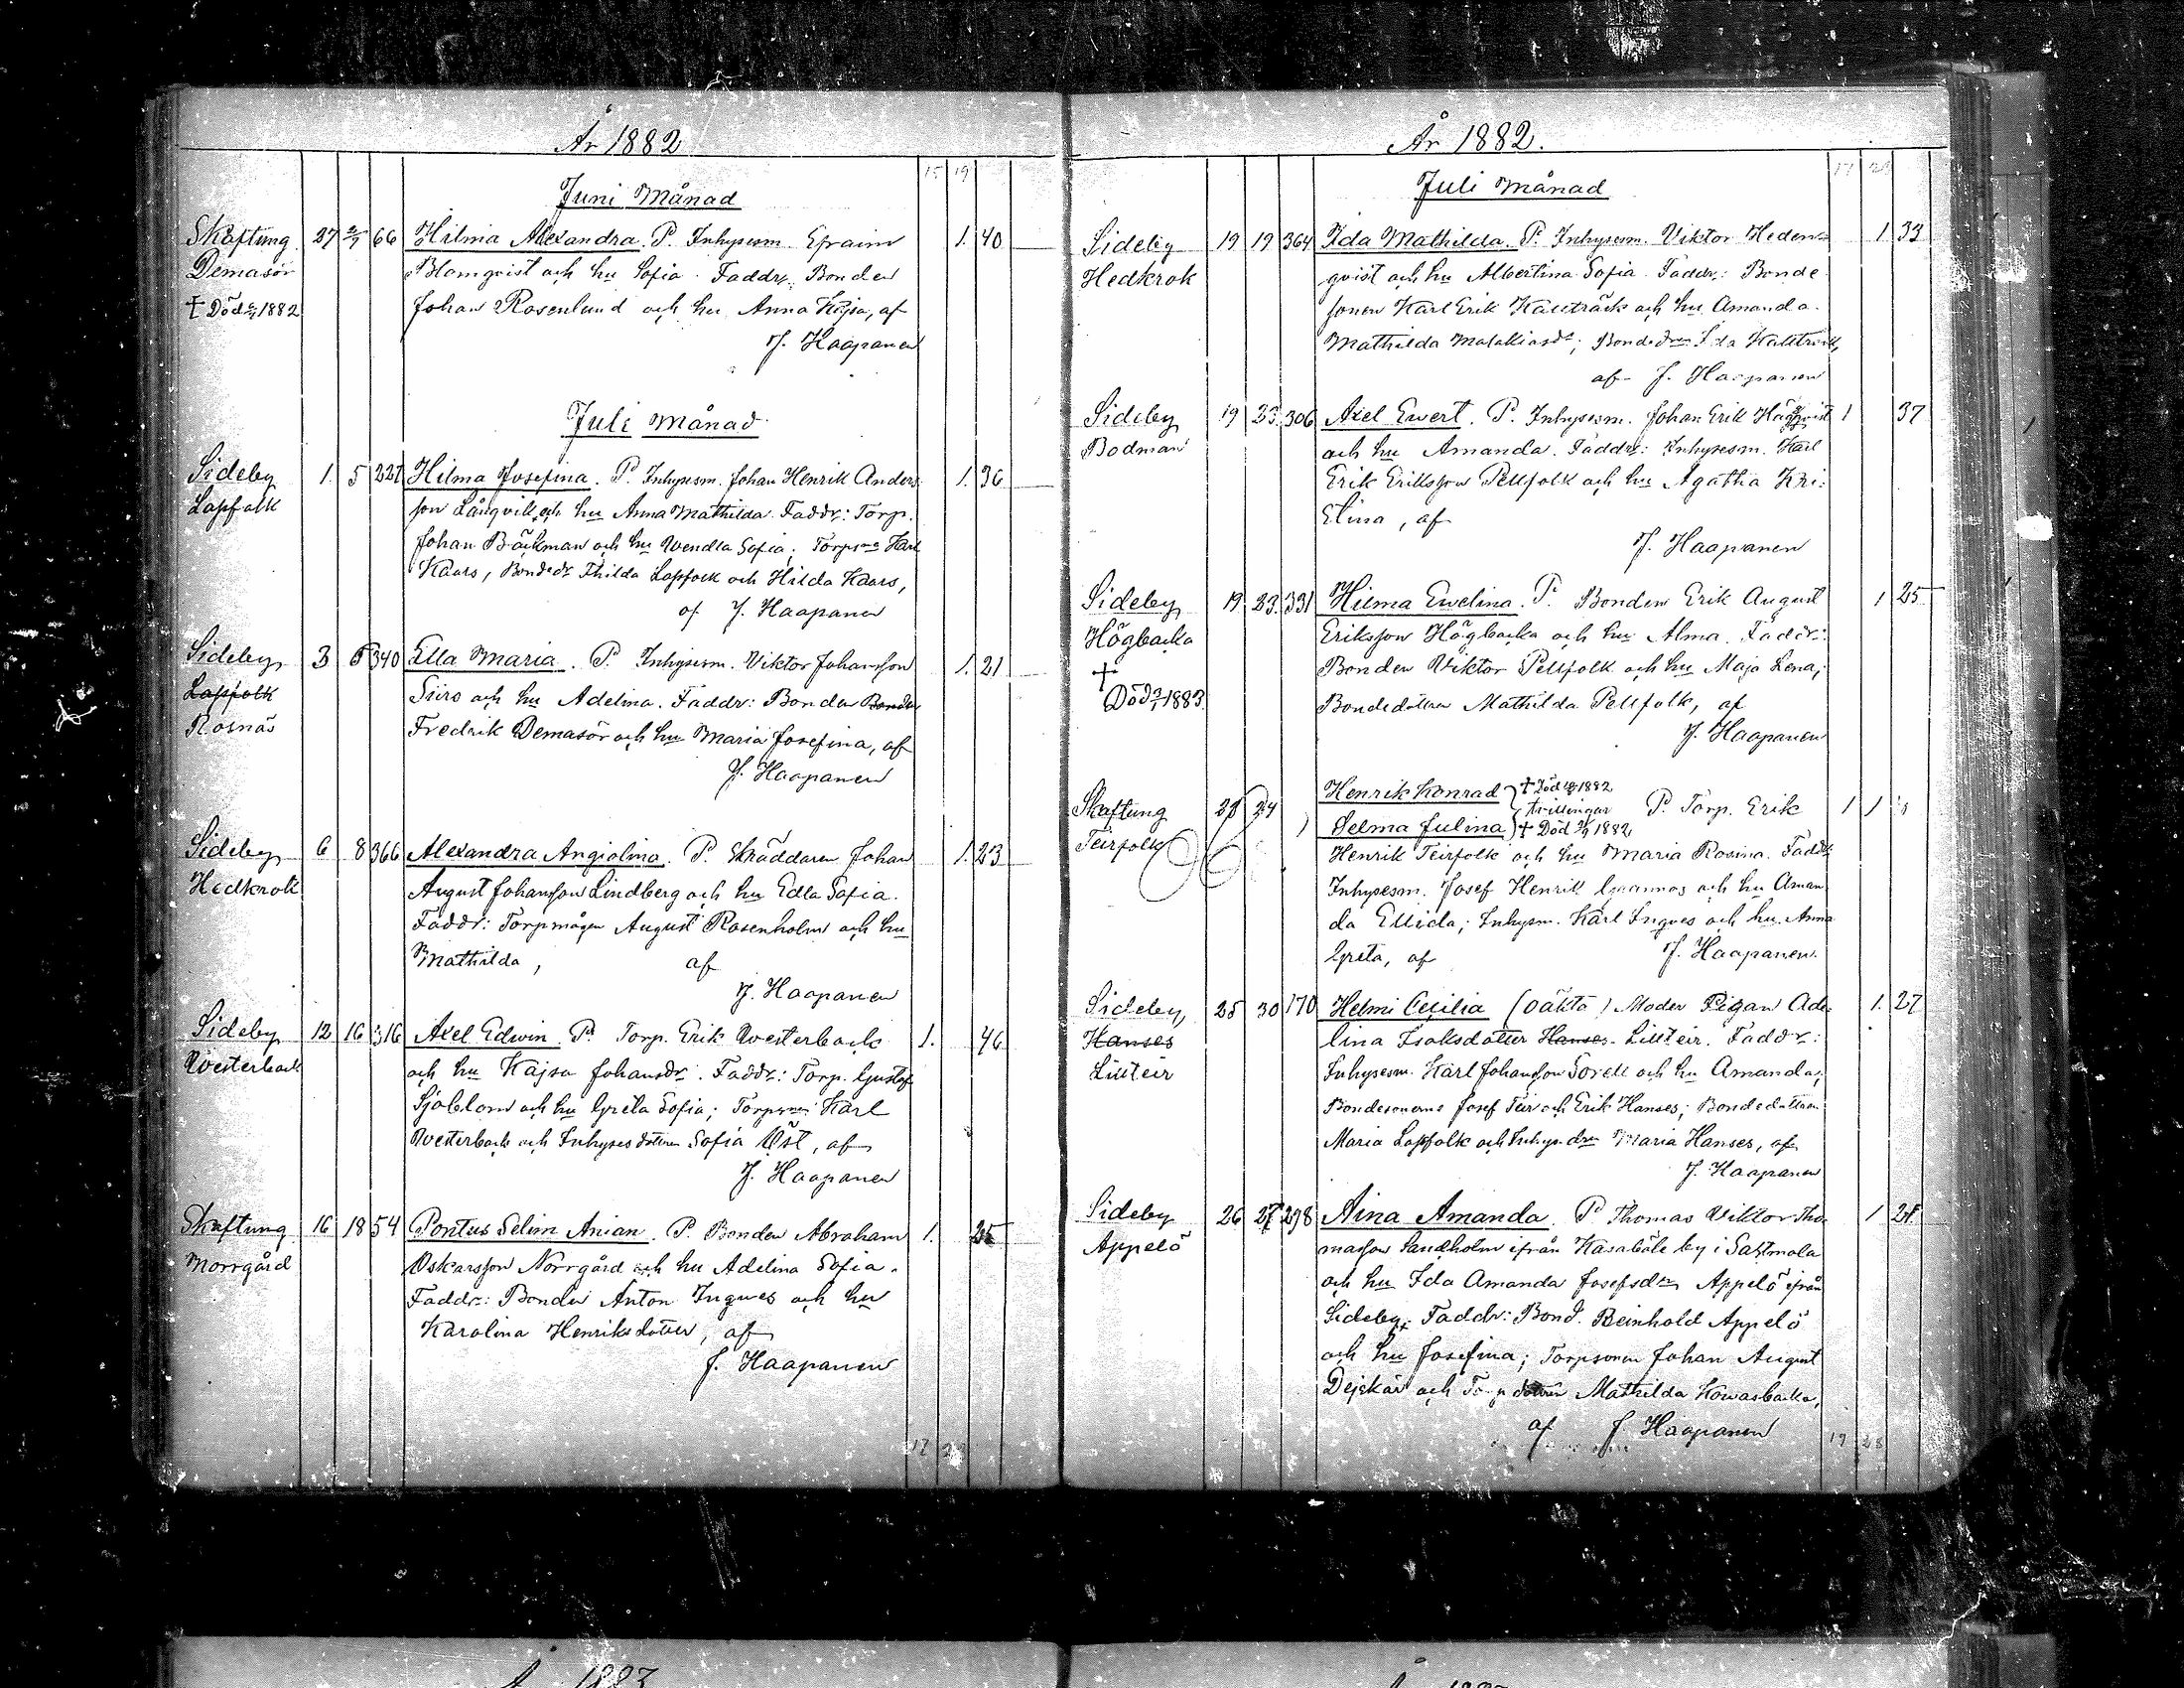 År 1882
15 19
Juni Månad
Skaftung 27 2/7 66 Hilma Alexandra. P. Inhysesm. Efraim 1. 40
Demasör Blomqvist och hu Sofia. Faddr: Bonden
† Död 1882 Johan Rosenlund och hu Anna Kajsa, af
J. Haapanen
Juli Månad
Sideby 1. 5 227 Hilma Josefina. P. Inhysesm. Johan Henrik Anders 1. 36
Lappfolk son Långvik och hu Anna Mathilda. Faddr: Torp.
Johan Bäckman och hu Wendla Sofia; Torps Karl
Kaars, Bondedr Thilda Lappfolk och Hilda Kaars,
af J. Haapanen
Sideby 3 8 340 Ella Maria. P. Inhysesm. Viktor Johansson 1. 21
Lappfolk Siiro och hu Adelina. Faddr: Bonden Bonden
Rosnäs Fredrik Demasör och hu Maria Josefina, af
J. Haapanen
Sideby 6 8 366 Alexandra Angiolina. P. Skräddaren Johan 1. 23
Hedkrok August Johansson Lindberg och hu Edla Sofia.
Faddr: Torpmågen August Rosenholm och hu
Mathilda, af
J. Haapanen
Sideby 12 16 316 Axel Edwin. P. Torp. Erik Westerback 1. 46
Westerback och hu Kajsa Johansdr. Faddr: Torp. Gustaf
Sjöblom och hu Greta Sofia; Torps Karl
Westerback och Inhysesdottren Sofia Öst, af
J. Haapanen
Skaftung 16 18 54 Pontus Selim Anian. P. Bonden Abraham 1. 25
Norrgård Oskarsson Norrgård och hu Adelina Sofia.
Faddr: Bonden Anton Ingves och hu
Karolina Henriksdotter, af
J. Haapanen
17
År 1882.
17
Juli Månad
Sideby 19 19 364 Ida Mathilda. P. Inhysesm. Viktor Heden= 1 33
Hedkrok qvist och hu Albertina Sofia. Faddr: Bonde
sonen Karl Erik Källträsk och hu Amanda
Mathilda Malakiasdr; Bondedren Ida Källträsk,
af J. Haapanen
Sideby 19 23 306 Axel Ewert. P. Inhysesm. Johan Erik Högqvist 1 37
Bodman och hu Amanda. Faddr: Inhysesm. Karl
Erik Eriksson Pellfolk och hu Agatha Kri:
stina, af
J. Haapanen
Sideby 19 23 331 Hilma Ewelina. P. Bonden Erik August 1 25
Högbacka Eriksson Högbacka och hu Alma. Faddr:
† Bonden Viktor Pellfolk och hu Maja Lena;
Död 3/1 1883 Bondedottren Mathilda Pellfolk, af
J. Haapanen
Henrik Konrad † Död 1882
Skaftung 23 24 trillingar P. Torp. Erik 1 1
Selma Julina † Död 1882
Teirfolk Henrik Teirfolk och hu Maria Rosina. Faddr
Inhysesm. Josef Henrik Grannas och hu Aman
da Ellida; Inhysm. Karl Ingves och hu Anna
Greta, af J. Haapanen.
Sideby 25 30 170 Helmi Cecilia (oäkta) Moder Pigan Ade 1. 27
Hanses lina Isaksdotter Hanses. Lillteir. Faddr:
Lillteir Inhysesm. Karl Johansson Sorell och hu Amanda;
Bondesonerne Josef Teir och Erik Hanses; Bondedottren
Maria Lappfolk och Inhysdren Maria Hanses, af
J. Haapanen
Sideby 26 27 298 Aina Amanda. P. Thomas Viktor Tho 1 21
Appelö masson Sandholm ifrån Kasaböle by i Sastmola
och hu Ida Amanda Josefsdr Appelö ifrån
Sideby. Faddr: Bond. Reinhold Appelö
och hu Josefina; Torpsonen Johan August
Dejskär och Torpdottren Mathilda Kowasbacka,
af J. Haapanen
19 28